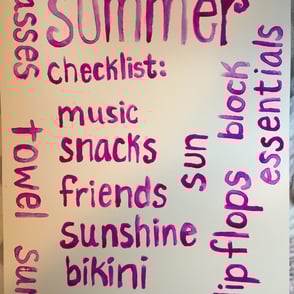 summer
checklist:
music
snacks
friends
sunshine
bikini
towel
sun
block
essentials